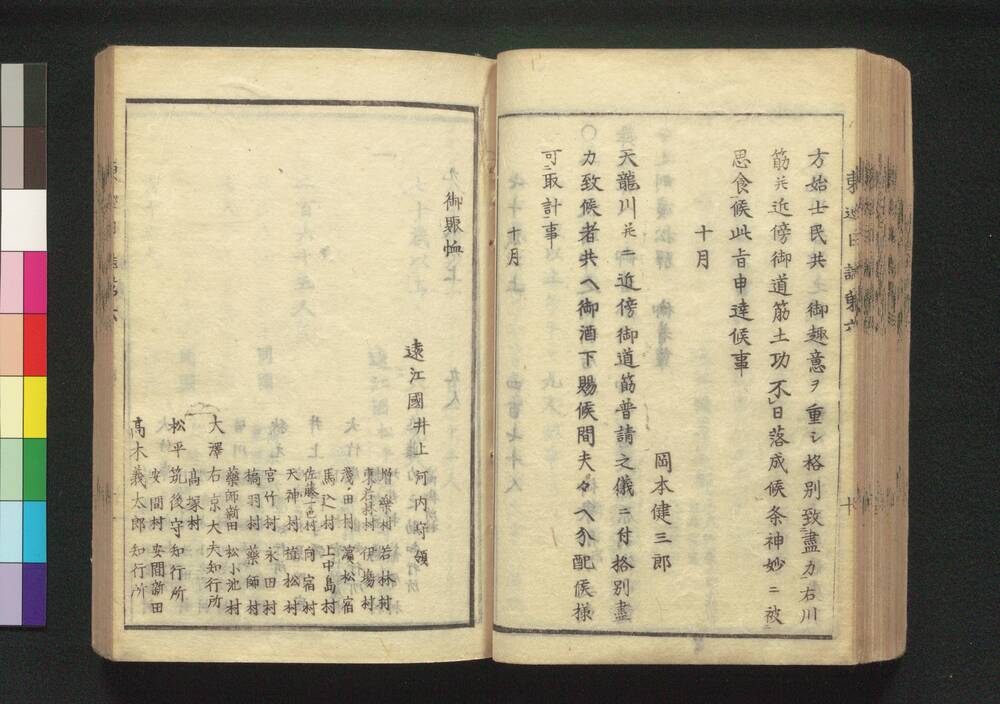 方始士民共ニ御趣意ヲ重シ格別致盡力右川
筋并近傍御道筋土功不日落成候条神妙ニ被
思食候此旨申達候事
十月
岡本健三郎
天龍川并ニ近傍御道筋普請之儀ニ付格別盡
力致候者共ヘ御酒下賜候間夫々ヘ分配候様
可取計事
十月
東巡日誌第六
十
九御賑恤
遠江國井上河内守領
増樂村 若林村
東若林村 伊場村
淺田村 濵松宿
馬込村 上中島村
佐藤一色村 向宿村
天神村 植松村
宮竹村 永田村
橋羽村 藥師村
藥師新田 松小池村
大澤右京大夫知行所
髙塚村
松平筑後守知行所
安間村 安間新田
髙木義太郎知行所